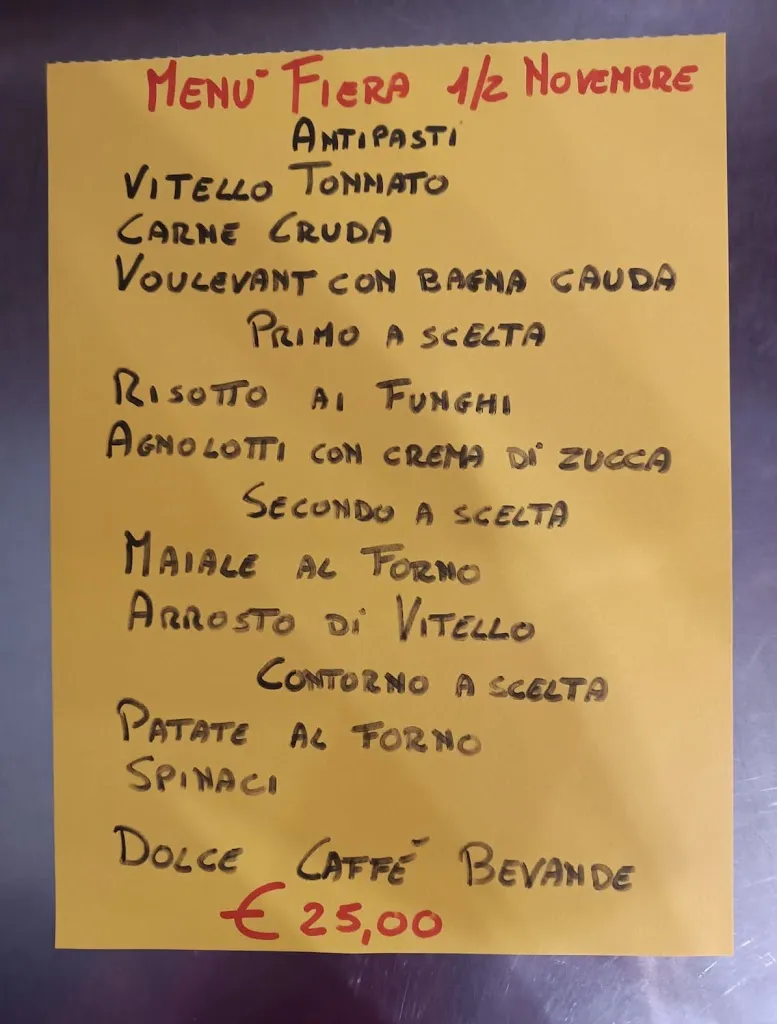 MENU' FIERA 1/2 NOVEMBRE
ANTIPASTI
VITELLO TONNATO
CARNE CRUDA
VOULEVANT CON BAGNA CAUDA
PRIMO A SCELTA
RISOTTO AI FUNGHI
AGNOLOTTI CON CREMA DI ZUCCA
SECONDO A SCELTA
MAIALE AL FORNO
ARROSTO DI VITELLO
CONTORNO A SCELTA
PATATE AL FORNO
SPINACI
DOLCE CAFFE' BEVANDE
€ 25,00